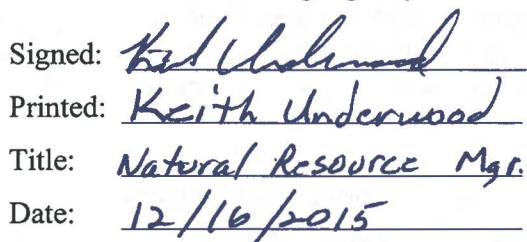 Signed: Keith Underwood
Printed: Keith Underwood
Title: Natural Resource Mgr.
Date: 12/16/2015